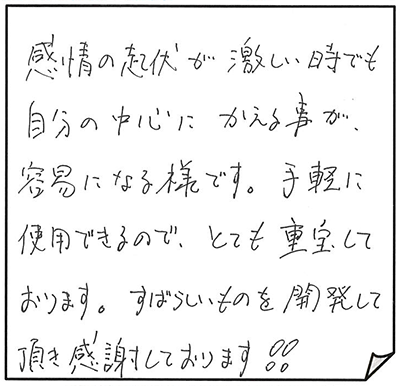 感情の起伏が激しい時でも
自分の中心に かえる事が、
容易になる様です。手軽に
使用できるので、とても重宝して
おります。すばらしいものを開発して
頂き感謝しております!!